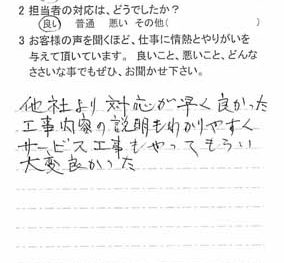 2 担当者の対応は、どうでしたか?
良い 普通 悪い その他( )
3 お客様の声を聞くほど、仕事に情熱とやりがいを
与えて頂いています。 良いこと、悪いこと、どんな
ささいな事でもぜひ、お聞かせ下さい。
他社より対応が早く良かった
工事内容の説明もわかりやすく
サービス工事もやってもらい
大変良かった